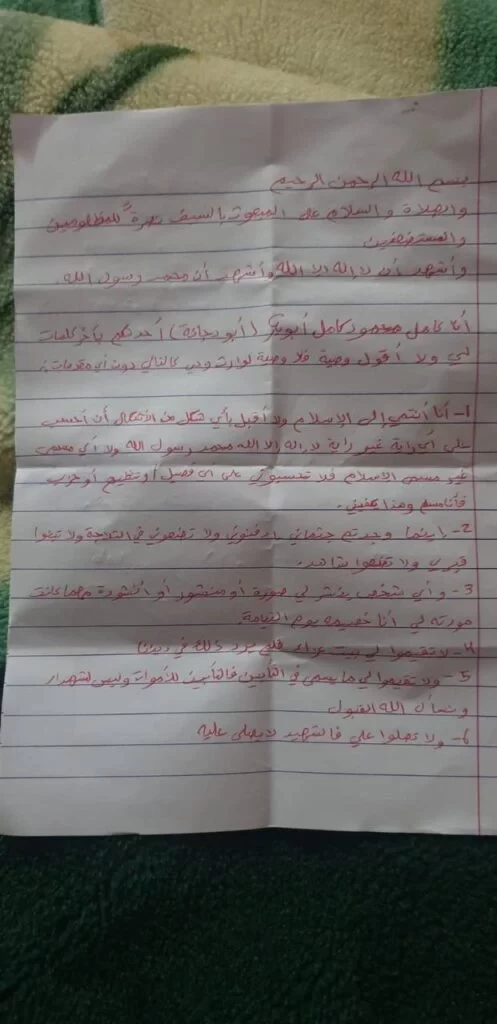 بسم الله الرحمن الرحيم
والصلاة والسلام على المبعوث بالسيف نصرةً للمظلومين
والمستضعفين
وأشهد أن لا إله إلا الله وأشهد أن محمد رسول الله.
أنا كامل محمود كامل أبوبكر (أبو دجانة) أحدثكم بآخر كلمات
لي ولا أقول وصية فلا وصية لوارث وهي كالتالي دون أي مقدمات:
1- أنا أنتمي إلى الإسلام ولا أقبل بأي شكل من الأشكال أن أحسب
على أي راية غير راية لا إله إلا الله محمد رسول الله ولا أي مسمى
غير مسمى الاسلام فلا تحسبوني على أي فصيل أو تنظيم أو حزب
فأنا مسلم وهذا يكفيني.
2- اينما وجدتم جثماني ادفنوني ولا تضعوني في الثلاجة ولا تبنوا
قبري ولا تضعوا شاهد.
3- وأي شخص ينشر لي صورة أو منشور أو أنشودة مهما كانت
مودته لي أنا خصيمه يوم القيامة.
4- لا تقيموا لي بيت عزاء فلم يرد ذلك في ديننا
5- ولا تقيموا لي ما يسمى في التأبين فالتأبين للأموات وليس للشهداء
ونسأل الله القبول
6- ولا تصلوا علي فالشهيد لا يصلى عليه